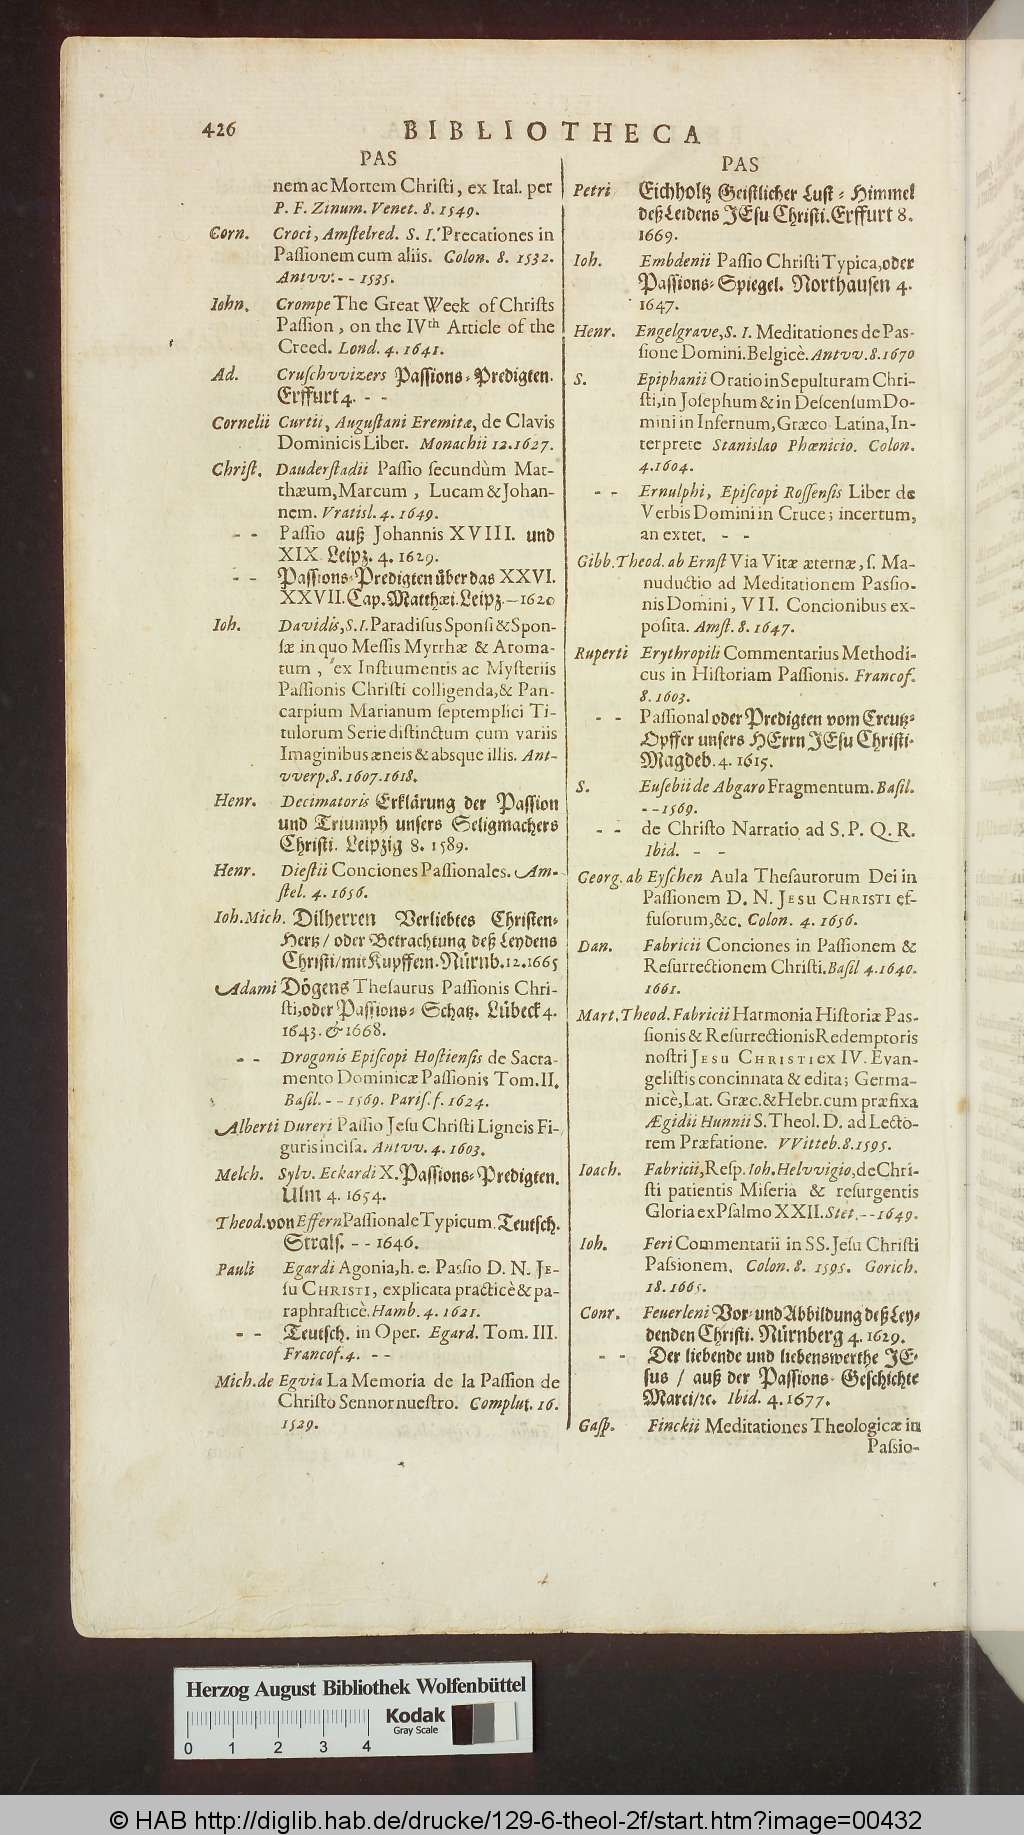 426
BIBLIOTHECA
PAS
nem ac Mortem Chriſti, ex Ital. per
P. F. Zinum. Venet. 8. 1549.
Corn. Croci, Amſtelred. S. I. Precationes in
Paſſionem cum aliis. Colon. 8. 1532.
Antvv. - - 1535.
Iohn. Crompe The Great Week of Chriſts
Paſſion, on the IVth Article of the
Creed. Lond. 4. 1641.
Ad. Cruſchvvizers Paſſions-Predigten.
Erffurt 4. - -
Cornelii Curtii, Auguſtani Eremitæ, de Clavis
Dominicis Liber. Monachii 12. 1627.
Chriſt. Dauderſtadii Paſſio ſecundùm Mat-
thæum, Marcum, Lucam & Johan-
nem. Vratisl. 4. 1649.
- - Paſſio auß Johannis XVIII. und
XIX. Leipz. 4. 1629.
- - Paſſions-Predigten über das XXVI.
XXVII. Cap. Matthæi. Leipz. - 1620
Ioh. Davidis, S. I. Paradiſus Sponſi & Spon-
ſæ in quo Meſſis Myrrhæ & Aroma-
tum, ex Inſtrumentis ac Myſteriis
Paſſionis Chriſti colligenda, & Pan-
carpium Marianum ſeptemplici Ti-
tulorum Serie diſtinctum cum variis
Imaginibus æneis & absque illis. Ant-
vverp. 8. 1607. 1618.
Henr. Decimatoris Erklärung der Paſſion
und Triumph unſers Seligmachers
Chriſti. Leipzig 8. 1589.
Henr. Dieſtii Conciones Paſſionales. Am-
ſtel. 4. 1656.
Ioh. Mich. Dilherren Verliebtes Chriſten-
Hertz / oder Betrachtung deß Leydens
Chriſti / mit Kupffern. Nürnb. 12. 1665
Adami Dögens Theſaurus Paſſionis Chri-
ſti, oder Paſſions-Schatz. Lübeck 4.
1643. & 1668.
- - Drogonis Epiſcopi Hoſtienſis de Sacra-
mento Dominicæ Paſſionis Tom. II.
Baſil. - - 1569. Pariſ. f. 1624.
Alberti Dureri Paſſio Jeſu Chriſti Ligneis Fi-
guris inciſa. Antvv. 4. 1603.
Melch. Sylv. Eckardi X. Paſſions-Predigten.
Ulm 4. 1654.
Theod. von Effern Paſſionale Typicum. Teutſch.
Stralſ. - - 1646.
Pauli Egardi Agonia, h. e. Paſſio D. N. JE-
ſu CHRISTI, explicata practicè & pa-
raphraſticè. Hamb. 4. 1621.
- - Teutſch. in Oper. Egard. Tom. III.
Francof. 4. - -
Mich. de Egvia La Memoria de la Paſſion de
Chriſto Sennor nueſtro. Complut. 16.
1529.
PAS
Petri Eichholtz Geiſtlicher Luſt-Himmel
deß Leidens JEſu Chriſti. Erffurt 8.
1669.
Ioh. Embdenii Paſſio Chriſti Typica, oder
Paſſions-Spiegel. Northauſen 4.
1647.
Henr. Engelgrave, S. I. Meditationes de Paſ-
ſione Domini. Belgicè. Antvv. 8. 1670
S. Epiphanii Oratio in Sepulturam Chri-
ſti, in Joſephum & in Deſcenſum Do-
mini in Infernum, Græco Latina, In-
terprete Stanislao Phœnicio. Colon.
4. 1604.
- - Ernulphi, Epiſcopi Roffenſis Liber de
Verbis Domini in Cruce; incertum,
an extet. - -
Gibb. Theod. ab Ernſt Via Vitæ æternæ, ſ. Ma-
nuductio ad Meditationem Paſſio-
nis Domini, VII. Concionibus ex-
poſita. Amſt. 8. 1647.
Ruperti Erythropili Commentarius Methodi-
cus in Hiſtoriam Paſſionis. Francof.
8. 1603.
- - Paſſional oder Predigten vom Creutz-
Opffer unſers HErrn JEſu Chriſti.
Magdeb. 4. 1615.
S. Euſebii de Abgaro Fragmentum. Baſil.
- - 1569.
- - de Chriſto Narratio ad S. P. Q. R.
Ibid. - -
Georg. ab Eyſchen Aula Theſaurorum Dei in
Paſſionem D. N. JESU CHRISTI ef-
fuſorum, &c. Colon. 4. 1656.
Dan. Fabricii Conciones in Paſſionem &
Reſurrectionem Chriſti. Baſil 4. 1640.
1661.
Mart. Theod. Fabricii Harmonia Hiſtoriæ Paſ-
ſionis & Reſurrectionis Redemptoris
noſtri JESU CHRISTI ex IV. Evan-
geliſtis concinnata & edita; Germa-
nicè, Lat. Græc. & Hebr. cum præfixa
Ægidii Hunnii S. Theol. D. ad Lecto-
rem Præfatione. VVitteb. 8. 1595.
Ioach. Fabricii, Reſp. Ioh. Helvvigio, de Chri-
ſti patientis Miſeria & reſurgentis
Gloria ex Pſalmo XXII. Stet. - - 1649.
Ioh. Feri Commentarii in SS. Jeſu Chriſti
Paſſionem. Colon. 8. 1595. Gorich.
18. 1665.
Conr. Feuerleni Vor- und Abbildung deß Ley-
denden Chriſti. Nürnberg 4. 1629.
- - Der liebende und liebenswerthe JE-
ſus / auß der Paſſions-Geſchichte
Marci / ꝛc. Ibid. 4. 1677.
Gaſp. Finckii Meditationes Theologicæ in
Paſſio-
Herzog August Bibliothek Wolfenbüttel
0 1 2 3 4
Kodak
Gray Scale
© HAB http://diglib.hab.de/drucke/129-6-theol-2f/start.htm?image=00432